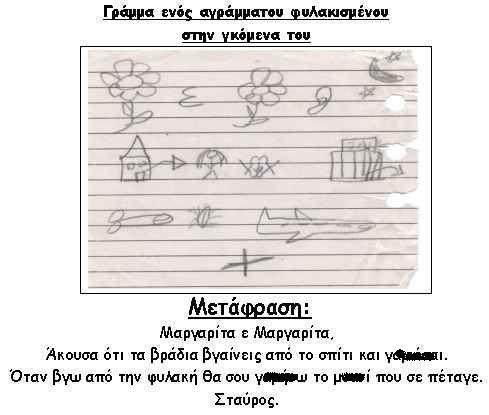 Γράμμα ενός αγράμματου φυλακισμένου
στην γκόμενα του
Μετάφραση:
Μαργαρίτα ε Μαργαρίτα,
Άκουσα ότι τα βράδια βγαίνεις από το σπίτι και
Όταν βγω από την φυλακή θα σου το που σε πέταγε.
Σταύρος.